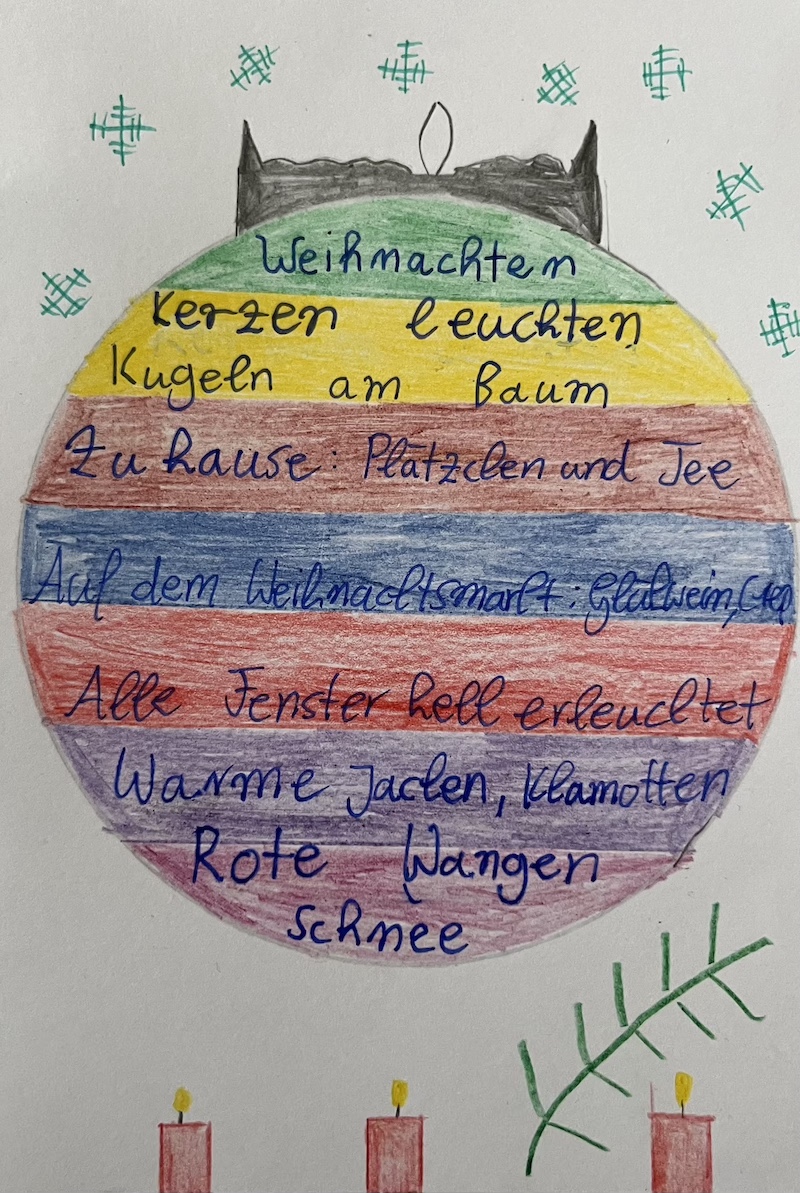 Weihnachten
Kerzen leuchten
Kugeln am Baum
Zu hause: Plätzchen und Tee
Auf dem Weihnachtsmarkt: Glühwein,
Alle Fenster hell erleuchtet
Warme Jacken, Klamotten
Rote Wangen
Schnee